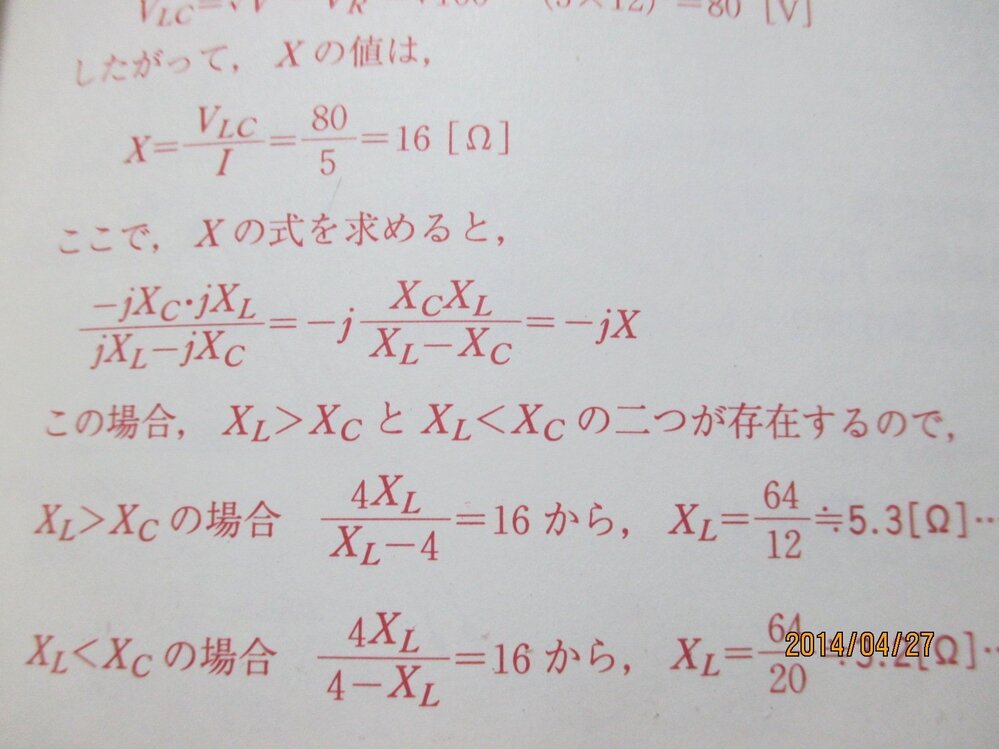 V_{LC}=√V² − V_R² = √100² − (5×12)² =80 [V]
したがって, Xの値は,
X=\frac{V_{LC}}{I}=\frac{80}{5}=16 [Ω]
ここで, Xの式を求めると,
\frac{-jX_C・jX_L}{jX_L-jX_C}=-j\frac{X_CX_L}{X_L-X_C}=-jX
この場合, X_L>X_CとX_L<X_Cの二つが存在するので,
X_L>X_Cの場合 \frac{4X_L}{X_L-4}=16から, X_L=\frac{64}{12}≒5.3[Ω]…
X_L<X_Cの場合 \frac{4X_L}{4-X_L}=16から, X_L=\frac{64}{20}≒3.2[Ω]…
2014/04/27